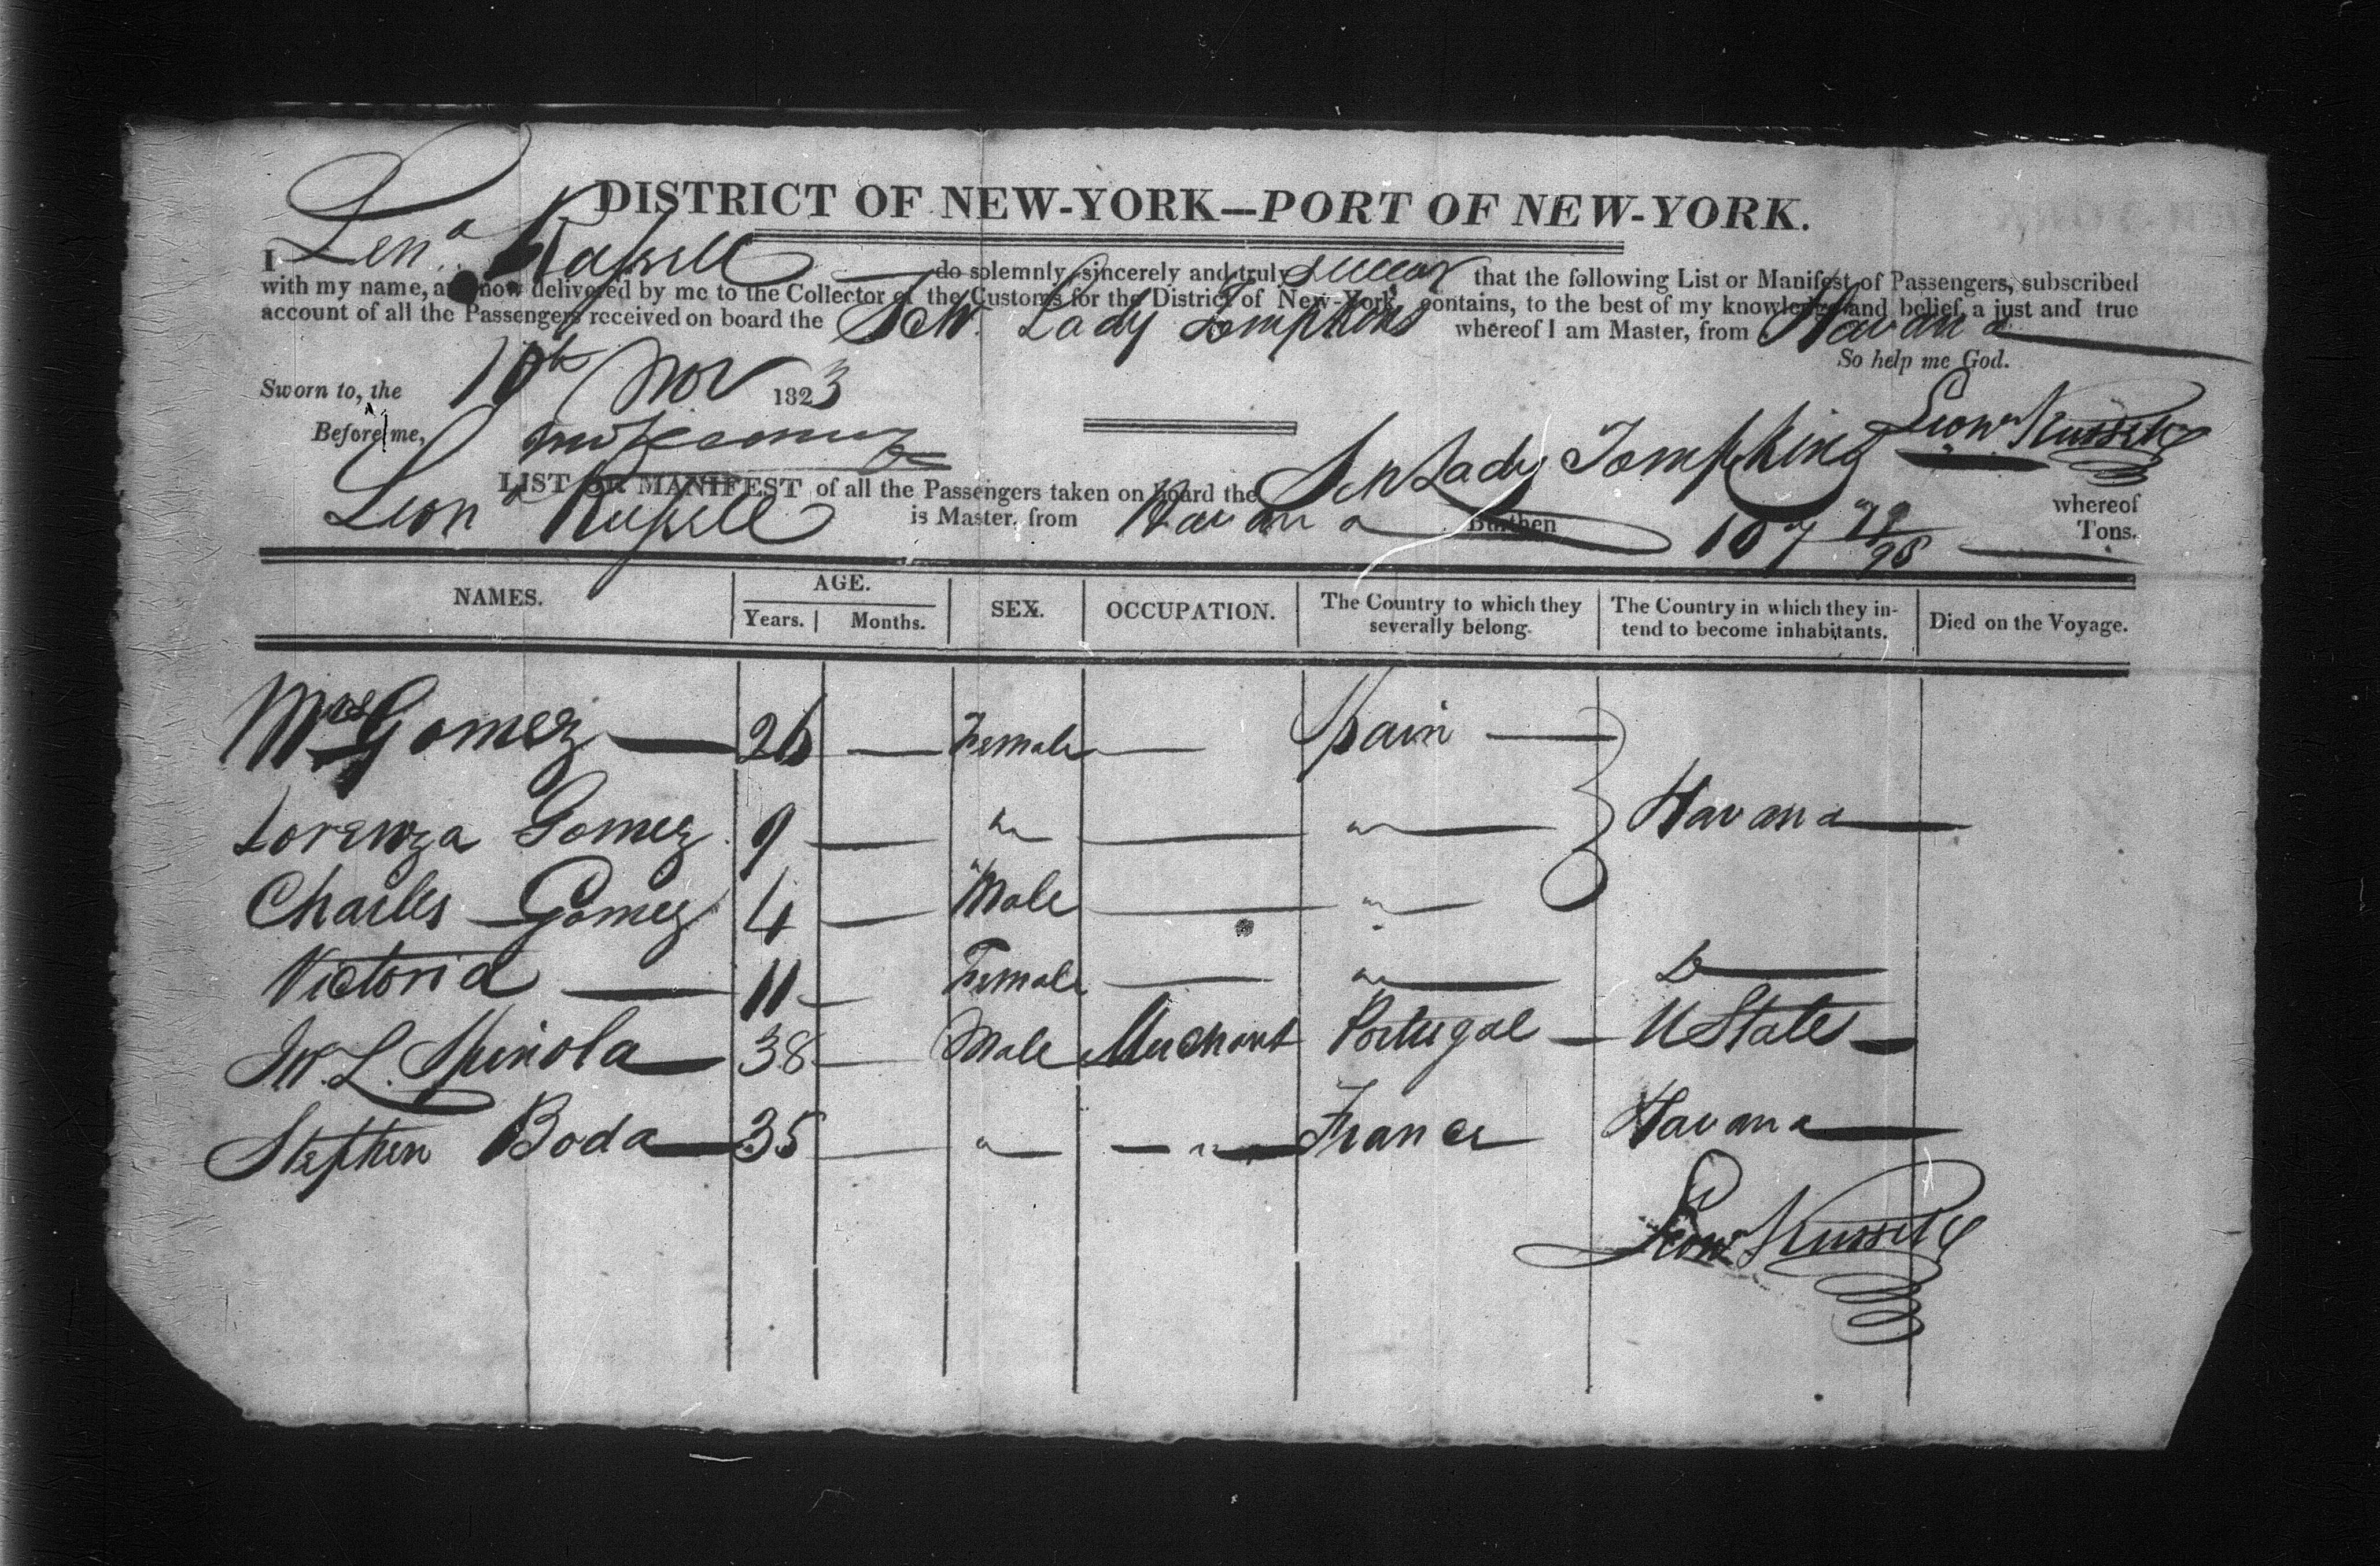 DISTRICT OF NEW-YORK—PORT OF NEW-YORK.
I Leon.d Russell do solemnly, sincerely and truly swear that the following List or Manifest of Passengers, subscribed
with my name, and now delivered by me to the Collector of the Customs for the District of New-York, contains, to the best of my knowledge and belief, a just and true
account of all the Passengers received on board the Schr. Lady Tompkins whereof I am Master, from Havana
So help me God.
Sworn to, the 10th Nov 1823
Before me,
Leond Russell
LIST OR MANIFEST of all the Passengers taken on board the Sch Lady Tompkins whereof
Leond Russell is Master, from Havana Burthen 107 Tons.
NAMES. AGE. Years. Months. SEX. OCCUPATION. The Country to which they severally belong. The Country in which they intend to become inhabitants. Died on the Voyage.
Mrs Gomez 26 Female Spain
Lorenza Gomez 9 " " Havana
Charles Gomez 4 Male "
Victoria 11 Female " Do
L. Spinola 38 Male Merchant Portugal U State
Stephen Boda 35 " " France Havana
Leond Russell